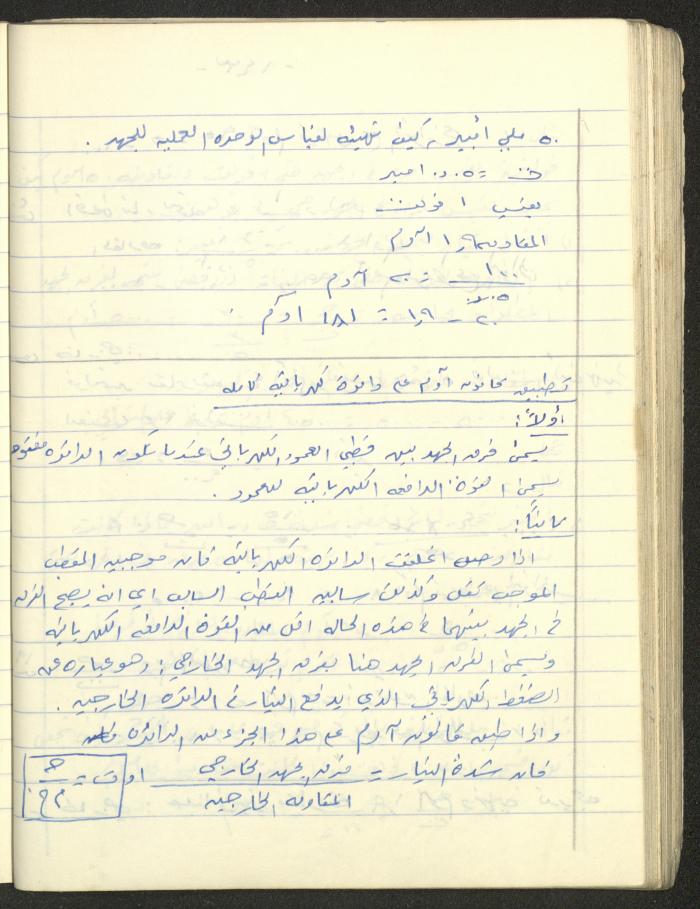 ٥٠ ملي امبير، كيف تهيئه لقياس الوحده العمليه للجهد .
ت = ٠٫٠٥ امبير
يعني ١ فولت
المقاومه ٠٫١ آوم
١٠٠ = ٢٠ آوم
٢٠ - ١٫٩ = ١٨٫١ اوم
تطبيق قانون آوم على دائرة كهربائيه كامله
أولاً :
يسمى فرق الجهد بين قطبي العمود الكهربائي عندما تكون الدائره مفتوحه
يسمى القوة الدافعه الكهربائيه للعمود .
ثانياً :
اذا وصل اغلقت الدائره الكهربائيه فان موجبية القطب
الموجب تقل وكذلك سالبية القطب السالب اي انه يصبح الفرق
في الجهد بينهما في هذه الحاله اقل من القوة الدافعه الكهربائيه
ويسمى الفرق الجهد هنا بفرق الجهد الخارجي : وهو عباره عن
الضغط الكهربائي الذي يدفع التيار في الدائره الخارجيه .
واذا طبق قانون آوم على هذا الجزء من الدائره
فان شدة التيار = فرق الجهد الخارجي او ت = جـ
المقاومه الخارجيه م خ